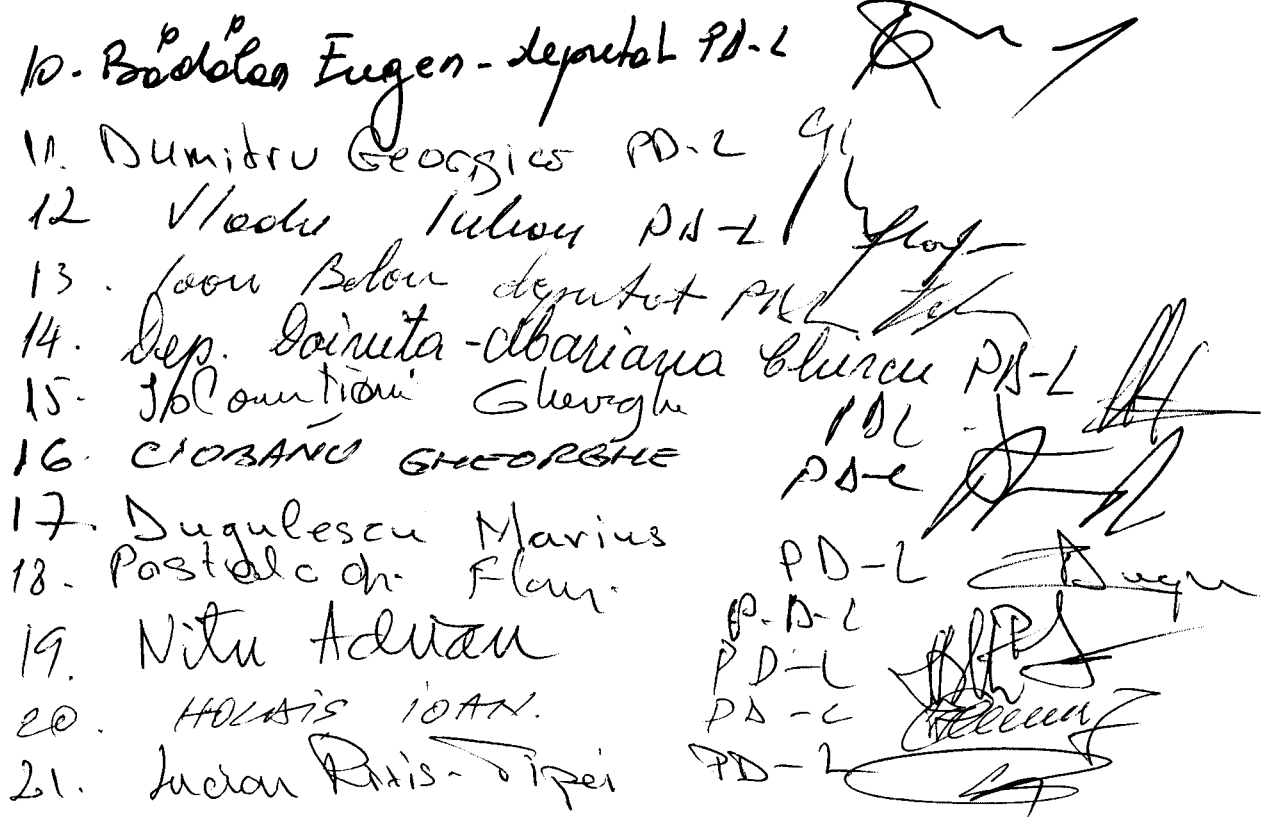 10. Bădălan Eugen - deputat PD-L
11. Dumitru Georgică PD-L
12 Vladu Iulian PD-L
13. Ioan Balan deputat PDL
14. Dep. Doinița-Mariana Chircu PD-L
15. Gheorghe PDL
16. CIOBANU GHEORGHE PD-L
17. Dugulescu Marius PD-L
18. P-D-L
19. Nitu Adrian PD-L
20. HOLDIȘ IOAN. PD-L
21. Lucian Riviș-Tipei PD-L